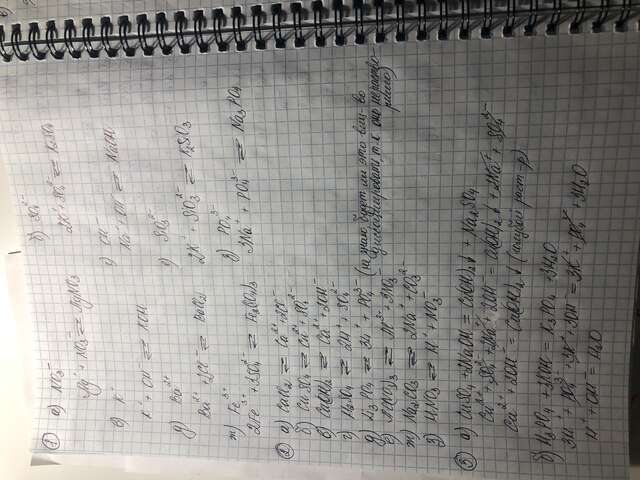 1 а) NO₃⁻
Ag⁺ + NO₃⁻ ⇌ AgNO₃
б) SO₄²⁻
2K⁺ + SO₄²⁻ ⇌ K₂SO₄
в) K⁺
K⁺ + OH⁻ ⇌ KOH
г) OH⁻
Na⁺ + OH⁻ ⇌ NaOH
д) Ba²⁺
Ba²⁺ + 2Cl⁻ ⇌ BaCl₂
е) SiO₃²⁻
2K⁺ + SiO₃²⁻ ⇌ K₂SO₃
ж) Fe³⁺
2Fe³⁺ + 3SO₄²⁻ ⇌ Fe₂(SO₄)₃
з) PO₄³⁻
3Na⁺ + PO₄³⁻ ⇌ Na₃PO₄
2 а) CaCl₂ ⇌ Ca²⁺ + 2Cl⁻
б) CuSO₄ ⇌ Cu²⁺ + SO₄²⁻
в) Ca(OH)₂ ⇌ Ca²⁺ + 2OH⁻
г) H₂SO₄ ⇌ 2H⁺ + SO₄²⁻
д) Li₃PO₄ ⇌ 3Li⁺ + PO₄³⁻ (не знаю, будет ли это вещ-во
диссоциировать т.к оно нераство-
римо)
е) Al(NO₃)₃ ⇌ Al³⁺ + 3NO₃⁻
ж) Na₂CO₃ ⇌ 2Na⁺ + CO₃²⁻
з) HNO₃ ⇌ H⁺ + NO₃⁻
3 а) CuSO₄ + 2NaOH = Cu(OH)₂↓ + Na₂SO₄
Cu²⁺ + SO₄²⁻ + 2Na⁺ + 2OH⁻ = Cu(OH)₂↓ + 2Na⁺ + SO₄²⁻
Cu²⁺ + 2OH⁻ = Cu(OH)₂↓ (голубой раст-р)
б) H₃PO₄ + 3KOH = K₃PO₄ + 3H₂O
3H⁺ + PO₄³⁻ + 3K⁺ + 3OH⁻ = 3K⁺ + PO₄³⁻ + 3H₂O
H⁺ + OH⁻ = H₂O